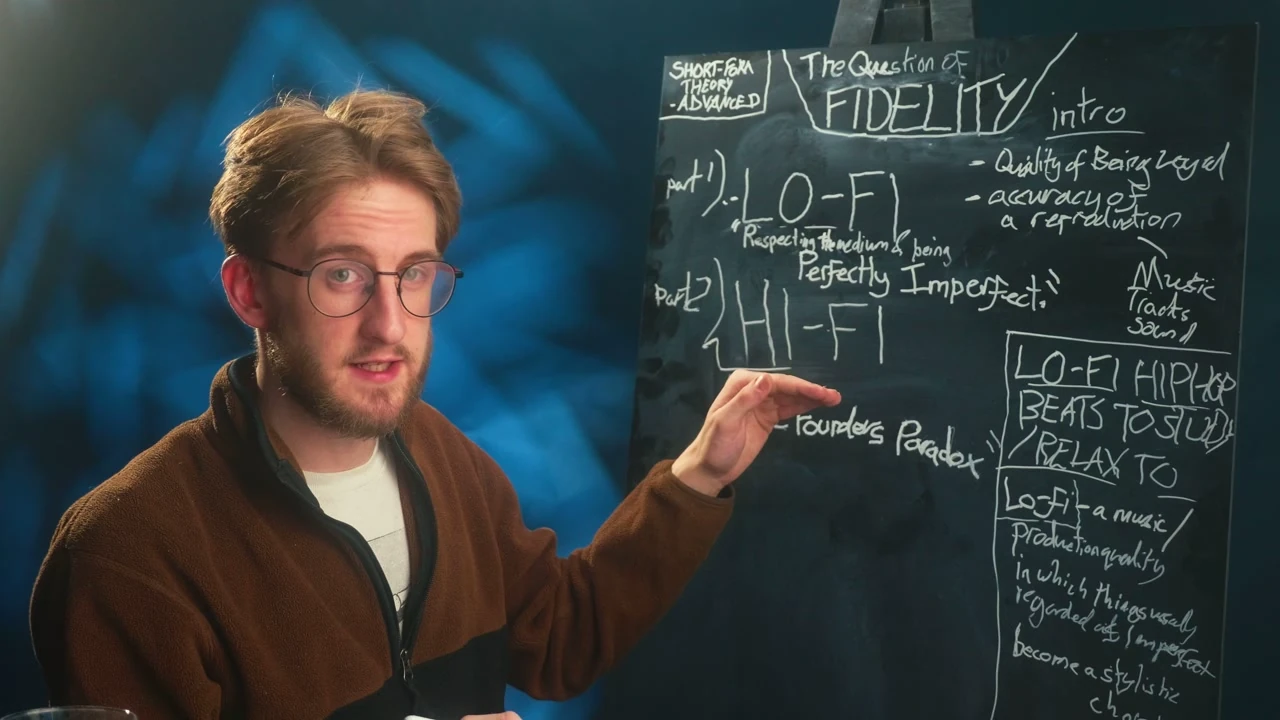 SHORT-FORM
THEORY
-ADVANCED
The Question of
FIDELITY
intro
- Quality of Being Loyal
- accuracy of
a reproduction
Music
Tracks
Sound
part 1) - LO-FI
"Respecting the medium & being
Perfectly Imperfect."
part 2) HI-FI
- Founders Paradox
LO-FI HIPHOP
BEATS TO STUDY
/RELAX TO
Lo-fi - a music/
production quality
in which things usually
regarded as imperfect
become a stylistic